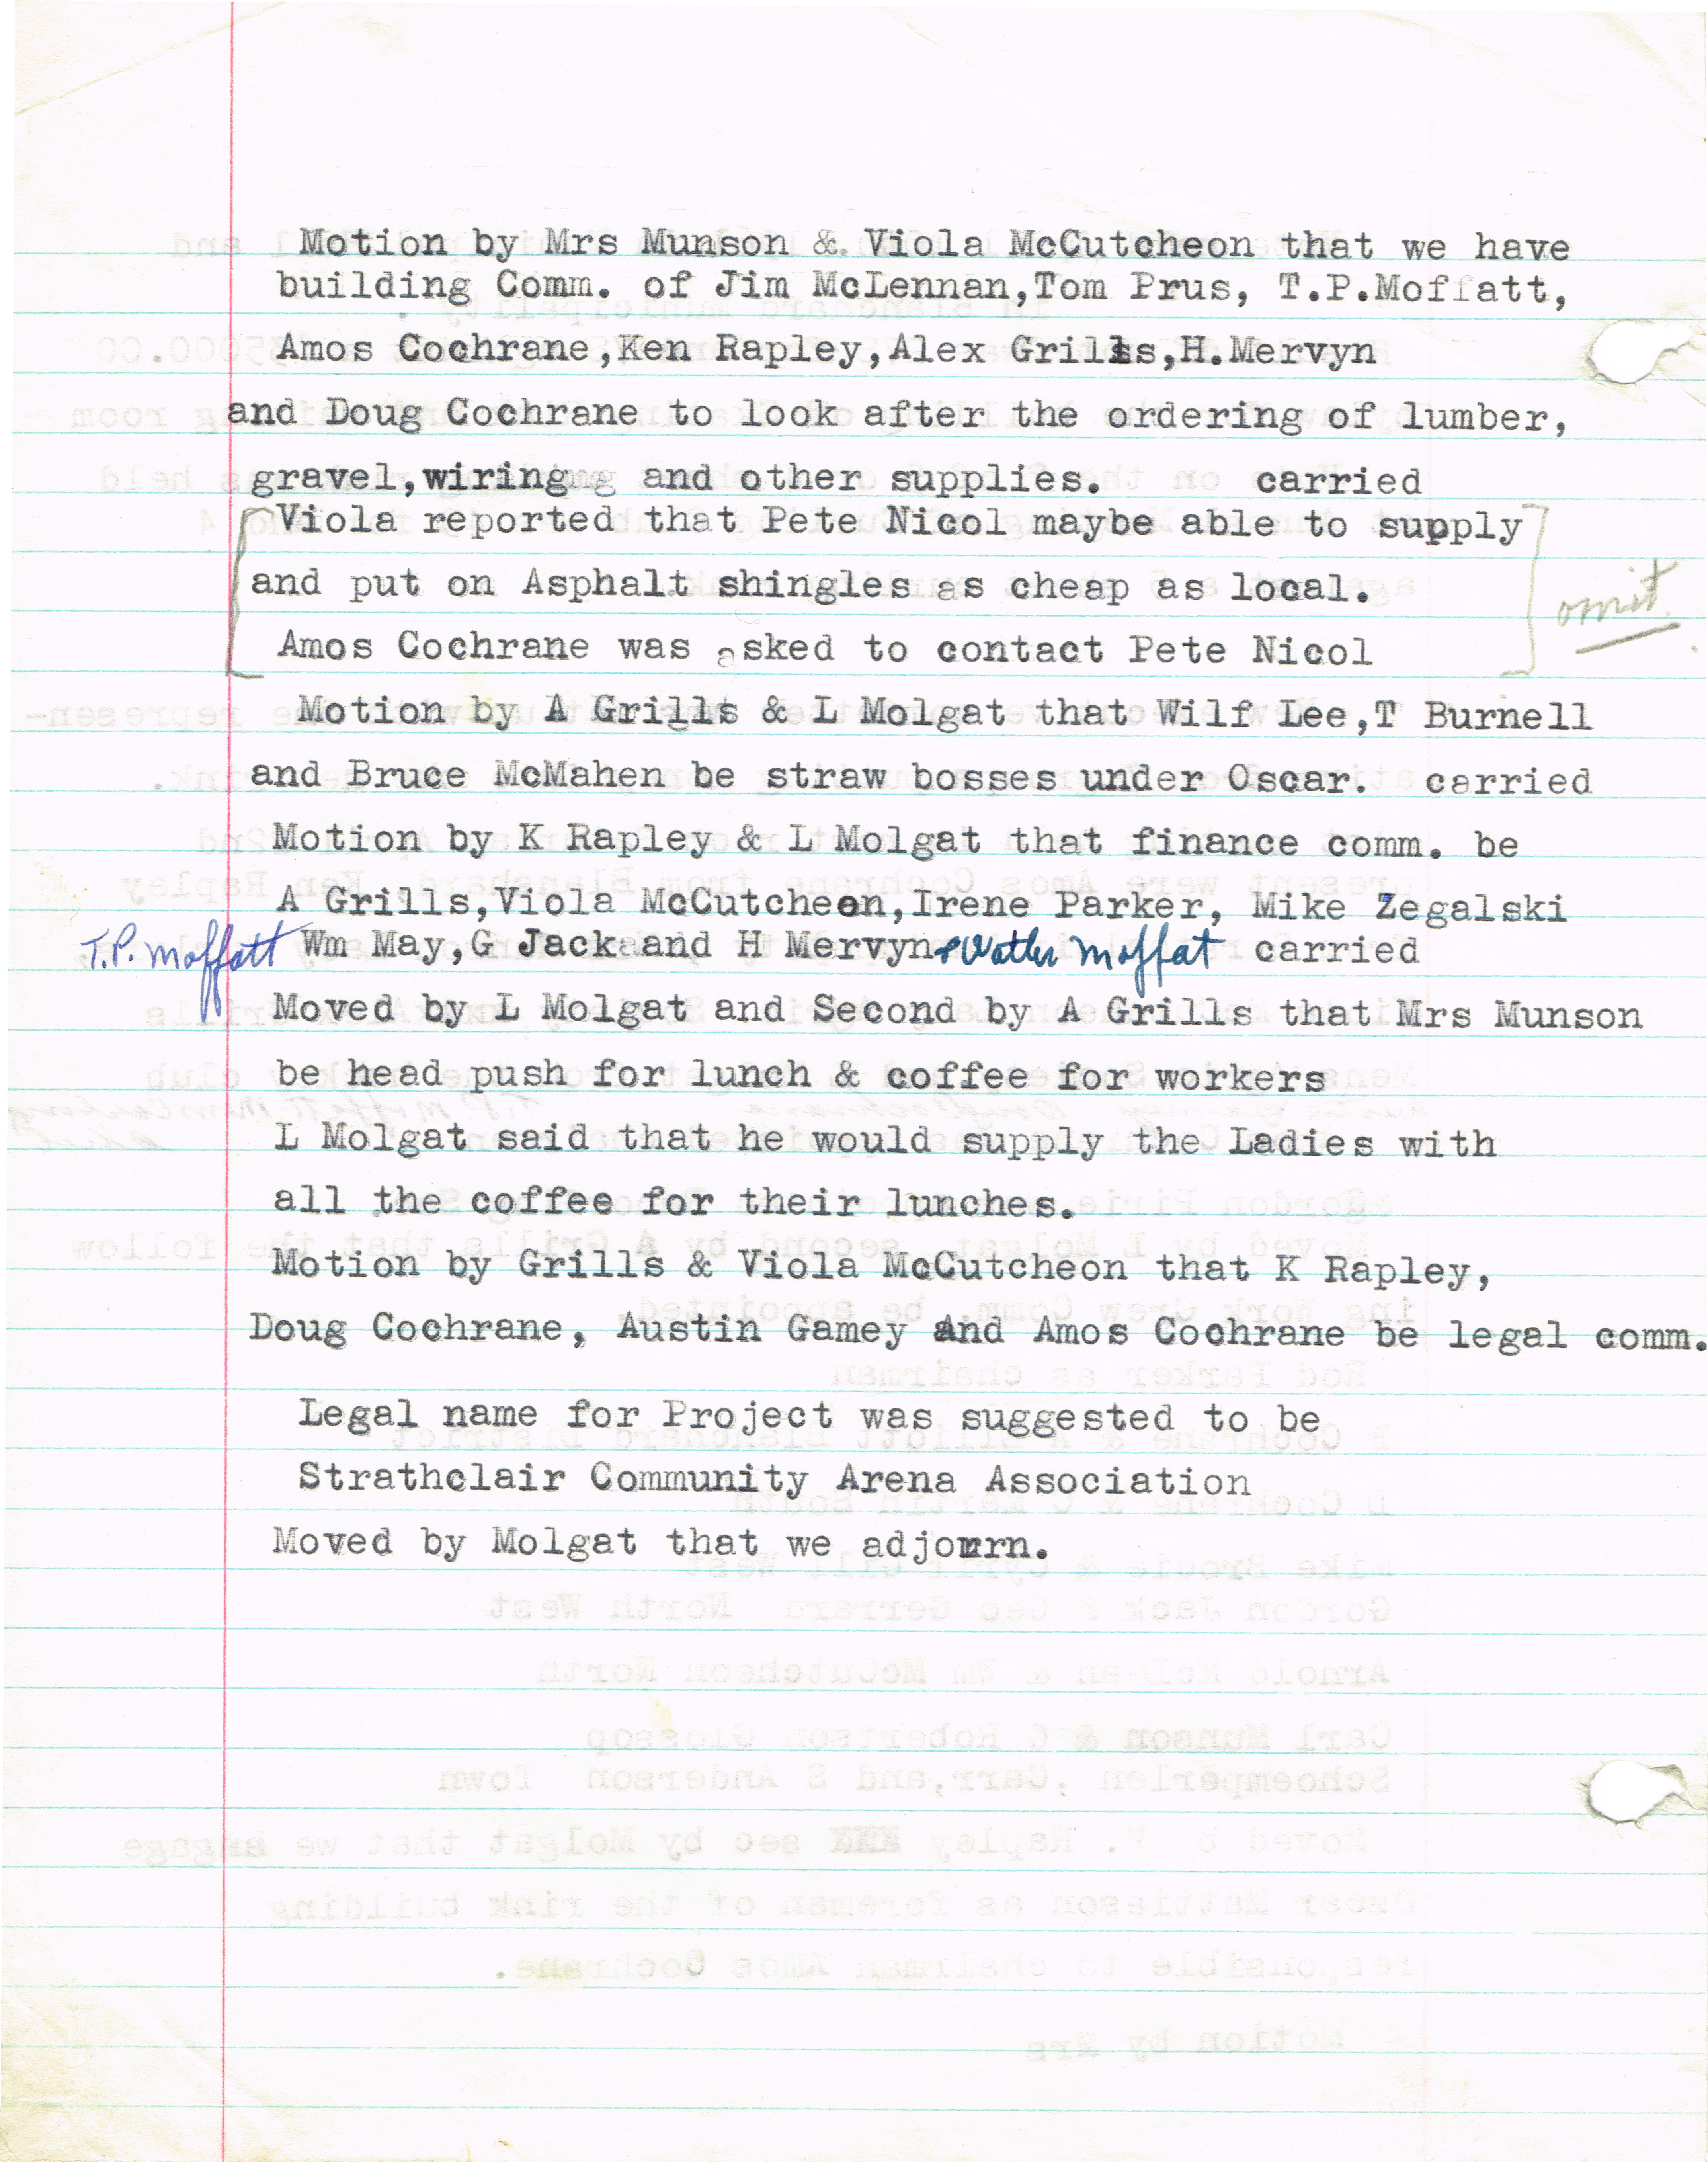 Motion by Mrs Munson & Viola McCutcheon that we have
building Comm. of Jim McLennan,Tom Prus, T.P.Moffatt,
Amos Cochrane,Ken Rapley,Alex Grills,H.Mervyn
and Doug Cochrane to look after the ordering of lumber,
gravel,wiring and other supplies. carried
Viola reported that Pete Nicol maybe able to supply
and put on Asphalt shingles as cheap as local.
omit.
Amos Cochrane was asked to contact Pete Nicol
Motion by A Grills & L Molgat that Wilf Lee,T Burnell
and Bruce McMahen be straw bosses under Oscar. carried
Motion by K Rapley & L Molgat that finance comm. be
A Grills,Viola McCutcheon,Irene Parker, Mike Zegalski
T.P. Moffatt Wm May,G Jack and H Mervyn & Walter Moffat carried
Moved by L Molgat and Second by A Grills that Mrs Munson
be head push for lunch & coffee for workers
L Molgat said that he would supply the Ladies with
all the coffee for their lunches.
Motion by Grills & Viola McCutcheon that K Rapley,
Doug Cochrane, Austin Gamey And Amos Cochrane be legal comm.
Legal name for Project was suggested to be
Strathclair Community Arena Association
Moved by Molgat that we adjourn.